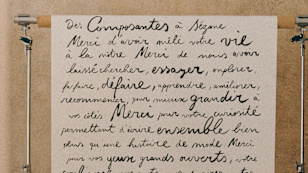 Des Composantes à Sézane
Merci d'avoir mêlé votre vie
à la nôtre Merci de nous avoir
laissé chercher, essayer, explorer,
parfaire, défaire, apprendre, améliorer,
recommencer, pour mieux grandir à
vos côtés Merci pour votre curiosité
permettant d'écrire ensemble bien
plus qu'une histoire de mode Merci
pour vos yeux grands ouverts, votre